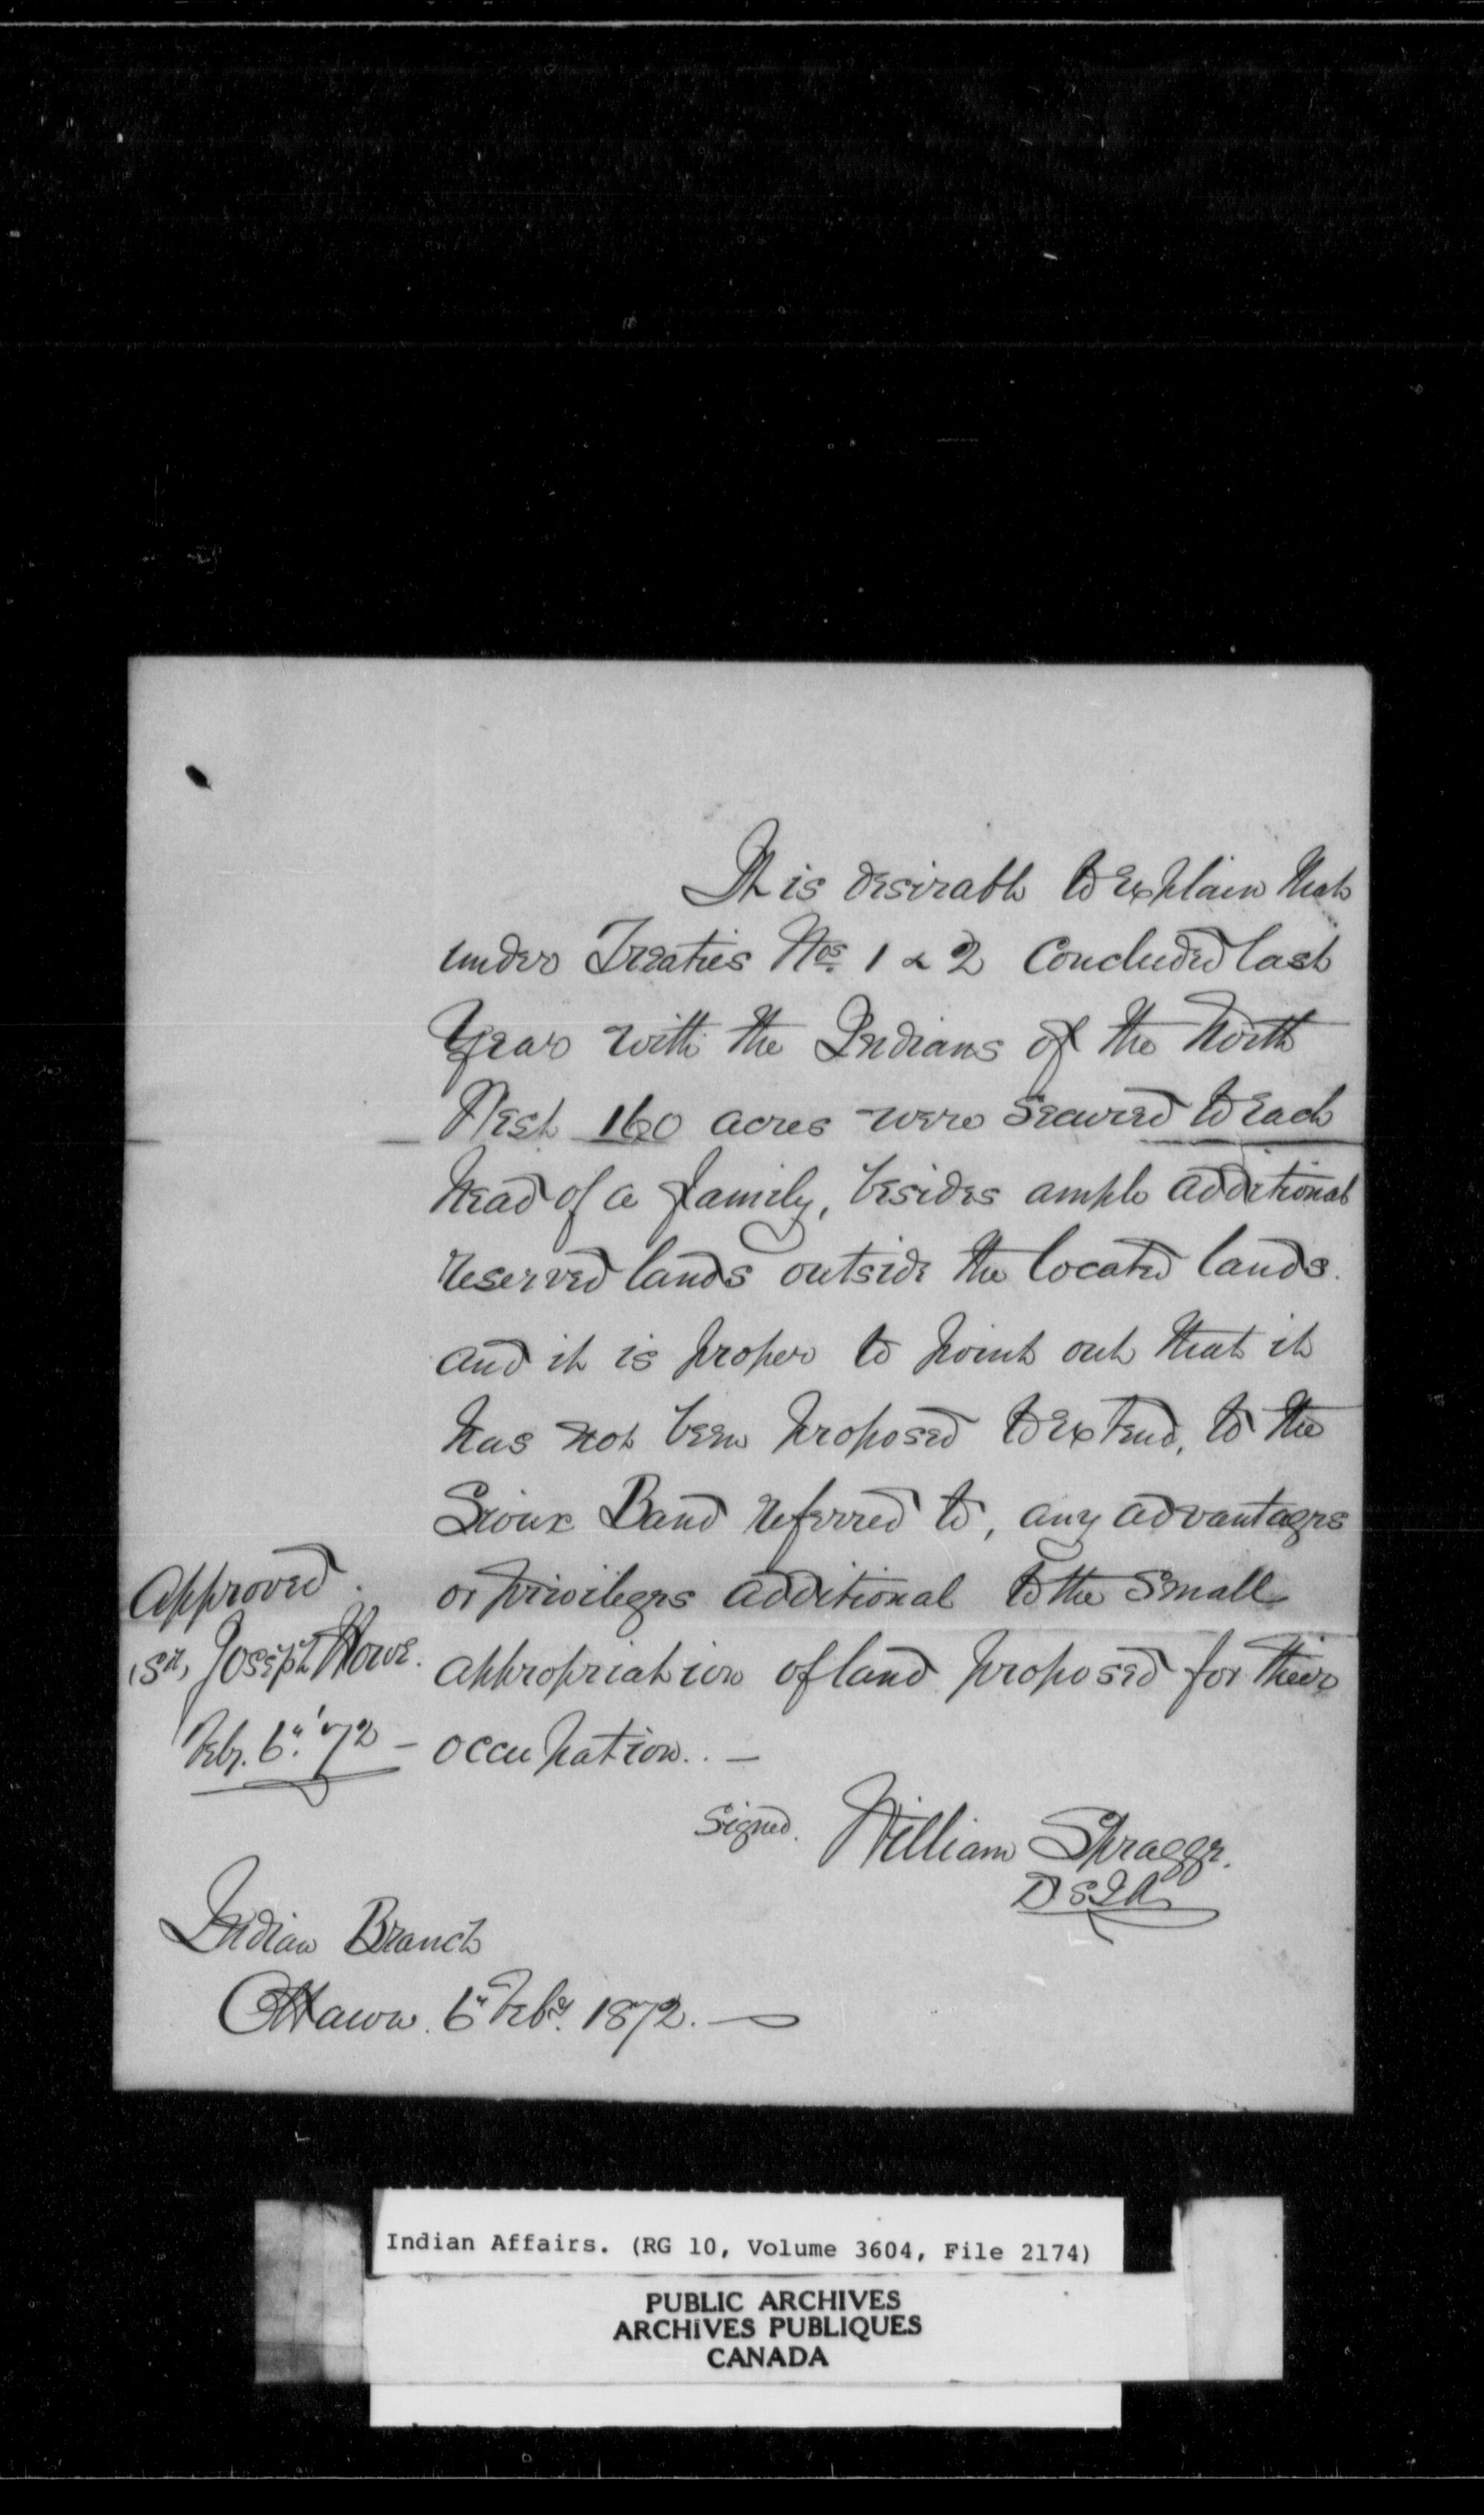 It is desirable to explain that
under Treaties Nos. 1 & 2 Concluded last
Year with the Indians of the North
West 160 acres were secured to each
head of a family, besides ample additional
reserved lands outside the located lands.
and it is proper to point out that it
has not been proposed to extend, to the
Sioux Band referred to, any advantages
or privileges additional to the small
appropriation of land proposed for their
occupation.. —
Approved.
(sd, Joseph Howe.
Feby. 6" '72 —
Signed. William Spragge.
D S I A
Indian Branch
Ottawa. 6" Feby. 1872. —
Indian Affairs. (RG 10, Volume 3604, File 2174)
PUBLIC ARCHIVES
ARCHIVES PUBLIQUES
CANADA